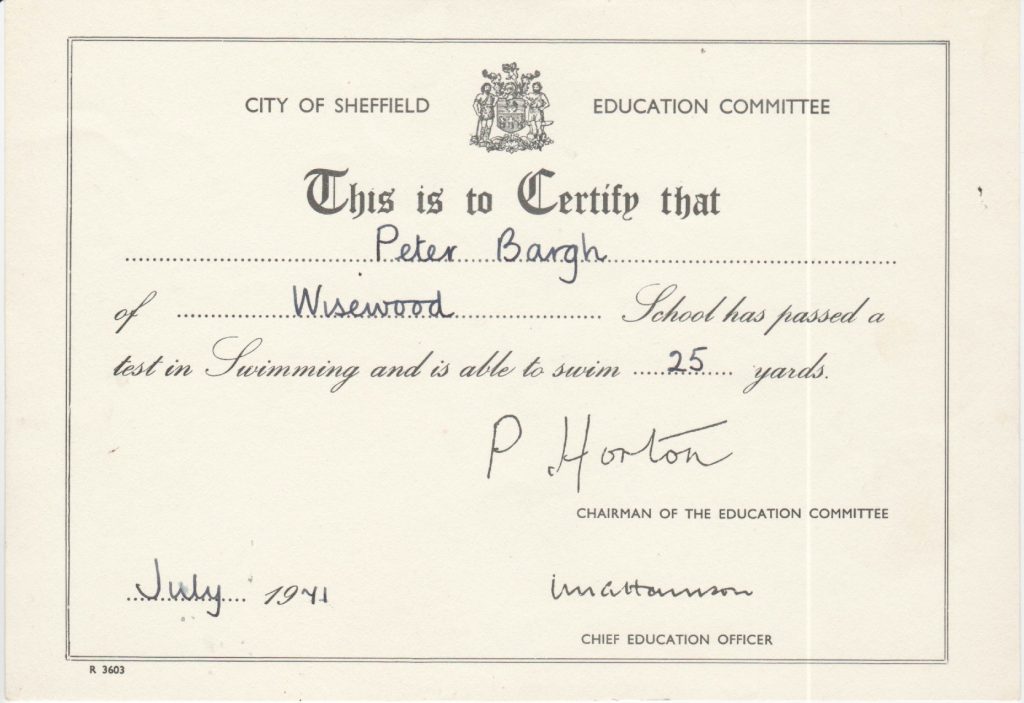 CITY OF SHEFFIELD EDUCATION COMMITTEE
This is to Certify that
Peter Bargh
of Wisewood School has passed a
test in Swimming and is able to swim 25 yards.
P. Horton
CHAIRMAN OF THE EDUCATION COMMITTEE
July 1971
CHIEF EDUCATION OFFICER
R 3603